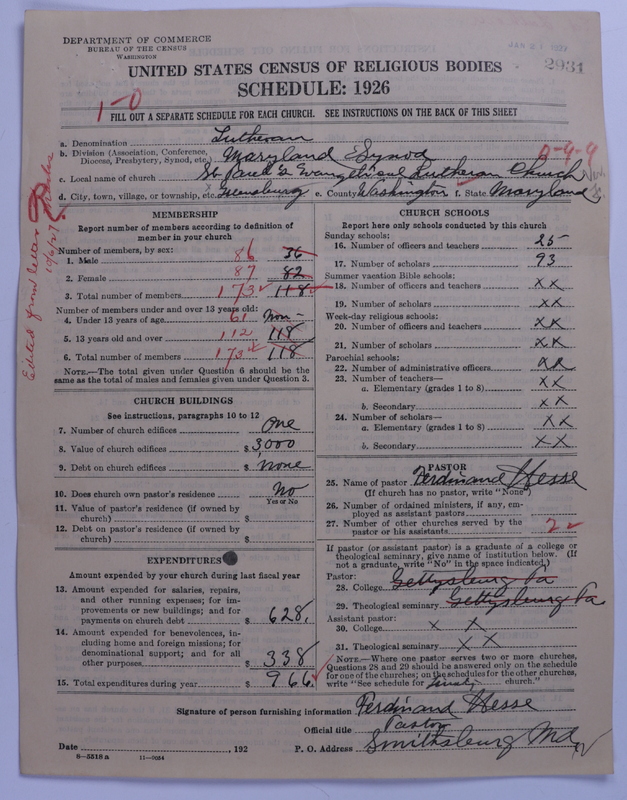 DEPARTMENT OF COMMERCE
BUREAU OF THE CENSUS
WASHINGTON
2931
UNITED STATES CENSUS OF RELIGIOUS BODIES
SCHEDULE: 1926
1-0
FILL OUT A SEPARATE SCHEDULE FOR EACH CHURCH. SEE INSTRUCTIONS ON THE BACK OF THIS SHEET
a. Denomination Lutheran
b. Division (Association, Conference, Diocese, Presbytery, Synod, etc.) Maryland Synod 0-4-9
c. Local name of church St Paul's Evangelical Lutheran Church
d. City, town, village, or township, etc. Greensburg e. County Washington f. State Maryland
Edited from letter 10/6/27
MEMBERSHIP
Report number of members according to definition of
member in your church
Number of members, by sex:
1. Male 86 36
2. Female 87 82
3. Total number of members 173 118
Number of members under and over 13 years old:
4. Under 13 years of age 61 Non-
5. 13 years old and over 112 118
6. Total number of members 173 118
NOTE.—The total given under Question 6 should be
same as the total of males and females given under Question 3.
CHURCH BUILDINGS
See instructions, paragraphs 10 to 12
7. Number of church edifices One
8. Value of church edifices $ 3,000
9. Debt on church edifices $ none
10. Does church own pastor's residence No
Yes or No
11. Value of pastor's residence (if owned by
church) $
12. Debt on pastor's residence (if owned by
church) $
EXPENDITURES
Amount expended by your church during last fiscal year
13. Amount expended for salaries, repairs,
and other running expenses; for im-
provements or new buildings; and for
payments on church debt $ 628.
14. Amount expended for benevolences, in-
cluding home and foreign missions; for
denominational support; and for all
other purposes $ 338
15. Total expenditures during year $ 966
CHURCH SCHOOLS
Report here only schools conducted by this church
Sunday schools:
16. Number of officers and teachers 25
17. Number of scholars 93
Summer vacation Bible schools:
18. Number of officers and teachers x x
19. Number of scholars x x
Week-day religious schools:
20. Number of officers and teachers x x
21. Number of scholars x x
Parochial schools:
22. Number of administrative officers x x
23. Number of teachers—
a. Elementary (grades 1 to 8) x x
b. Secondary x x
24. Number of scholars—
a. Elementary (grades 1 to 8) x x
b. Secondary x x
PASTOR
25. Name of pastor Ferdinand Hesse
(If church has no pastor, write "None")
26. Number of ordained ministers, if any, em-
ployed as assistant pastors
27. Number of other churches served by the
pastor or his assistants 2
If pastor (or assistant pastor) is a graduate of a college or
theological seminary, give name of institution below. (If
not a graduate, write "No" in the space indicated.)
Pastor:
28. College Gettysburg Pa
29. Theological seminary Gettysburg Pa
Assistant pastor:
30. College x x
31. Theological seminary x x
NOTE.—Where one pastor serves two or more churches,
Questions 28 and 29 should be answered only on the schedule
for one of the churches; on the schedules for the other churches,
write "See schedule for church."
Signature of person furnishing information Ferdinand Hesse
Official title Pastor
Date , 192 P. O. Address Smithsburg Md
8-5518 a 11-9054